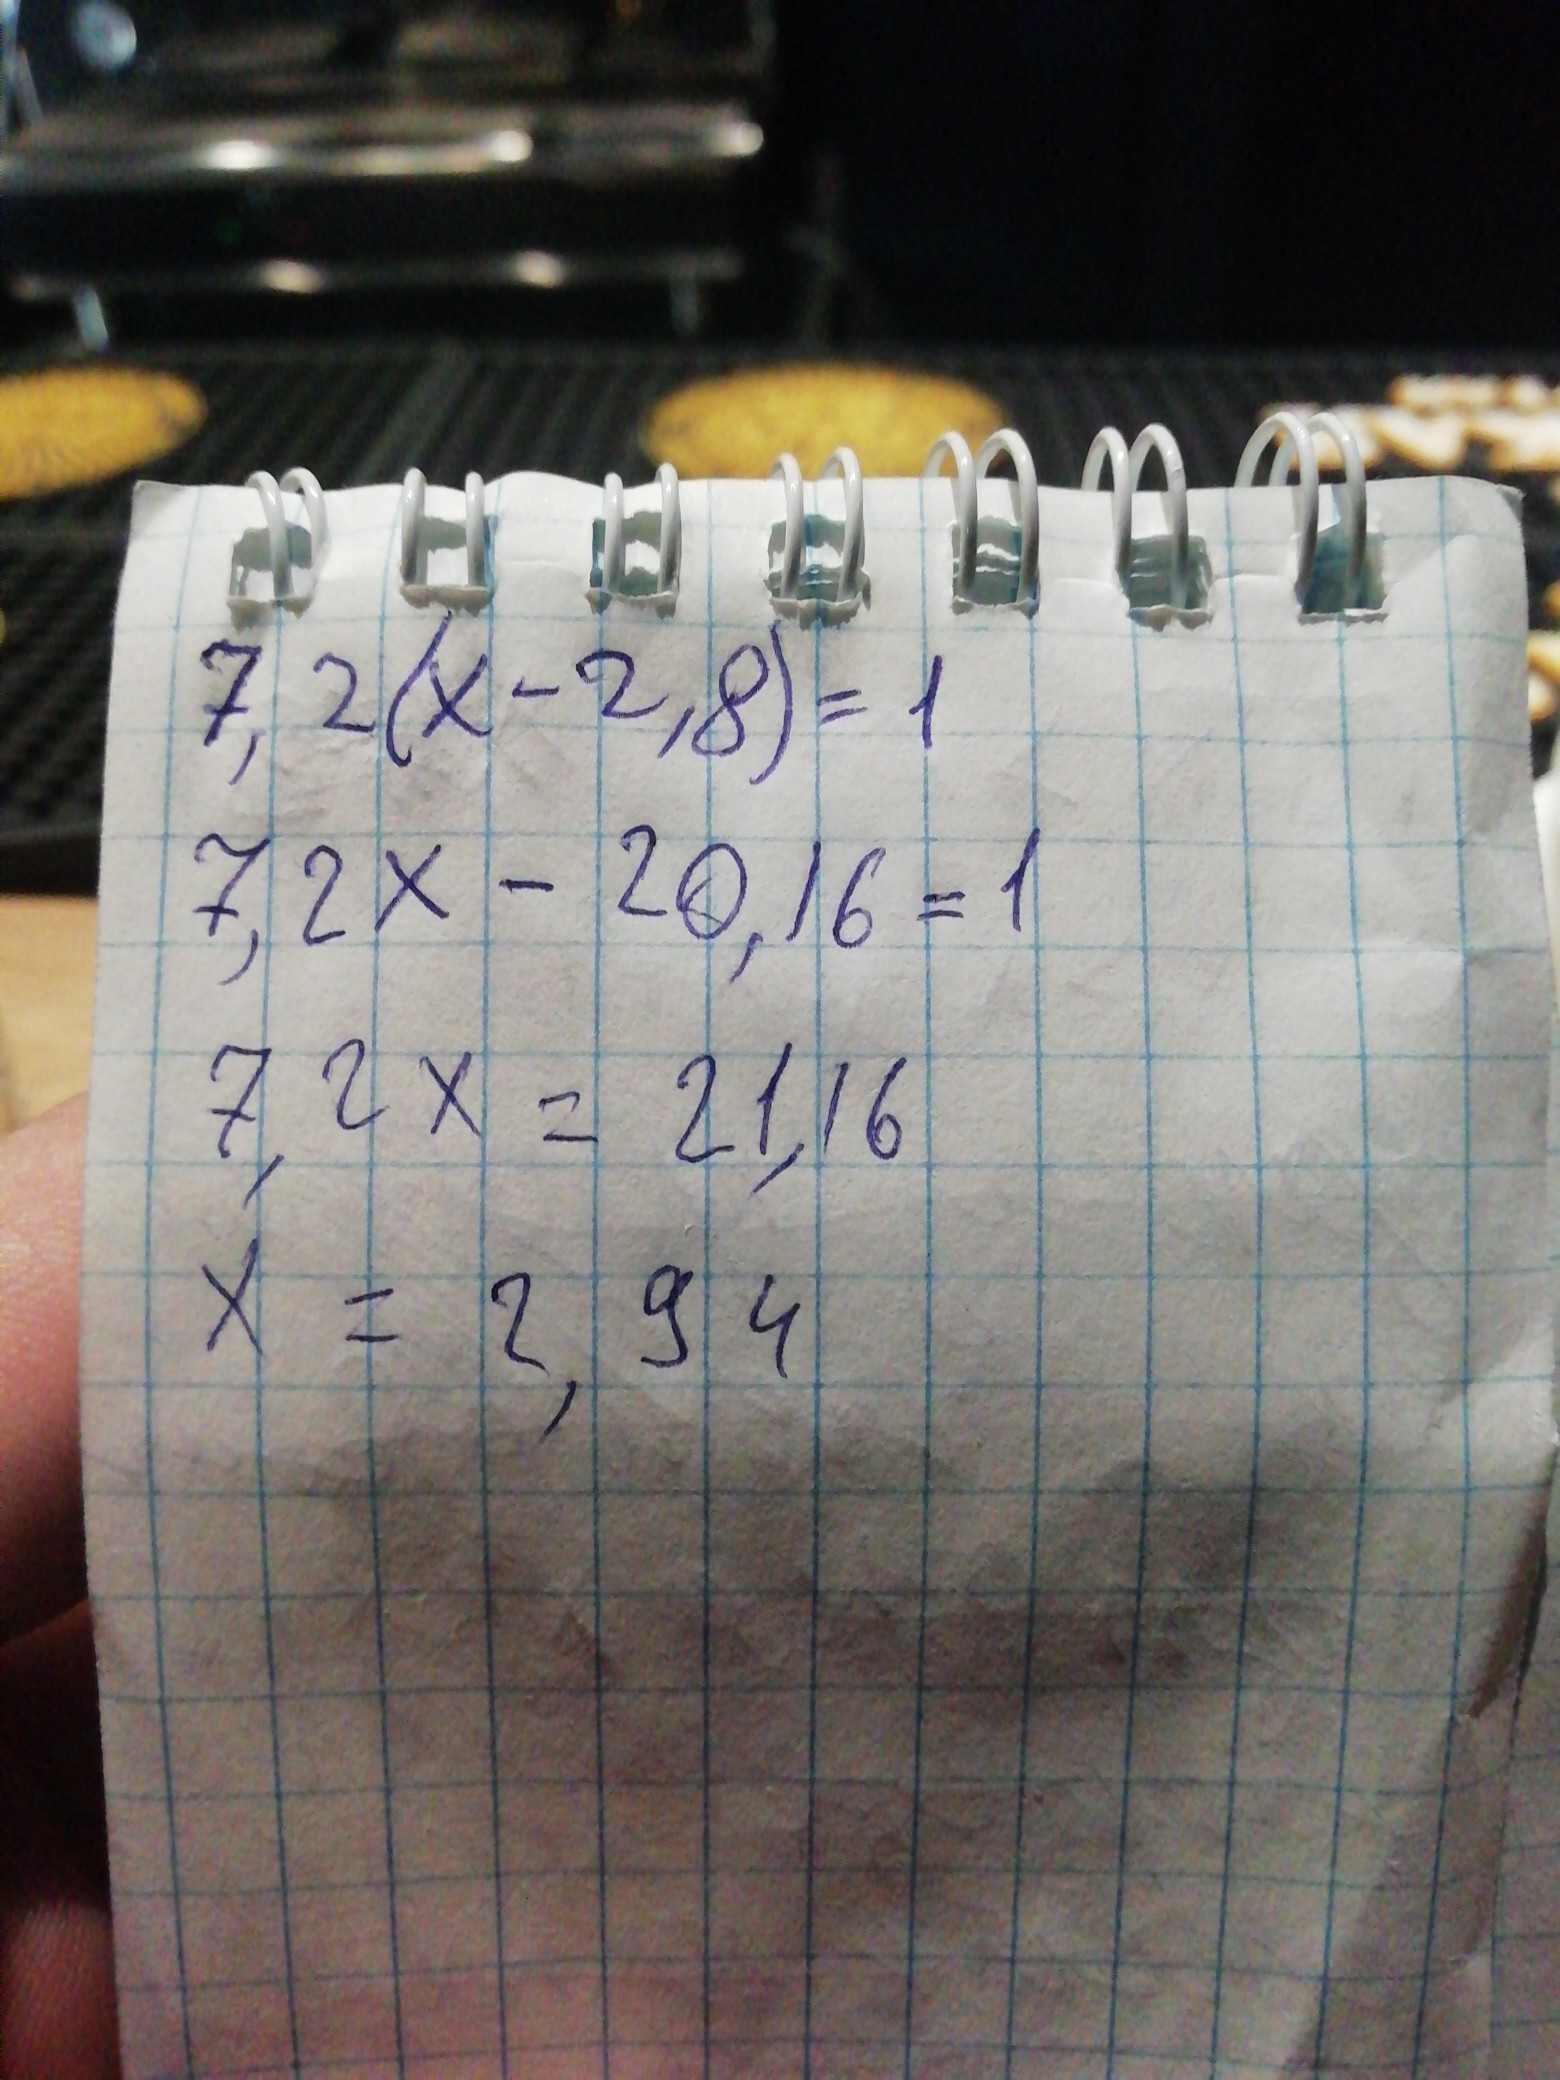 7,2(x-2,8)=1
7,2x-20,16=1
7,2x=21,16
x=2,94